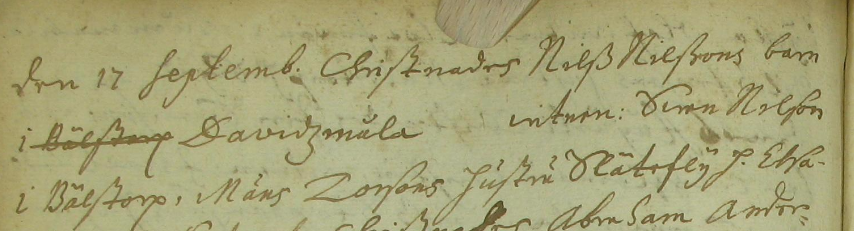 den 17 Septemb. Christnades Nilß Nilßons barn
i Bälstorp Davidzmåla witnen: Swen Nilson
i Bälstorp, Måns Torsons hustru Slätefly P. Elsa-
Christnades Abraham Ander-